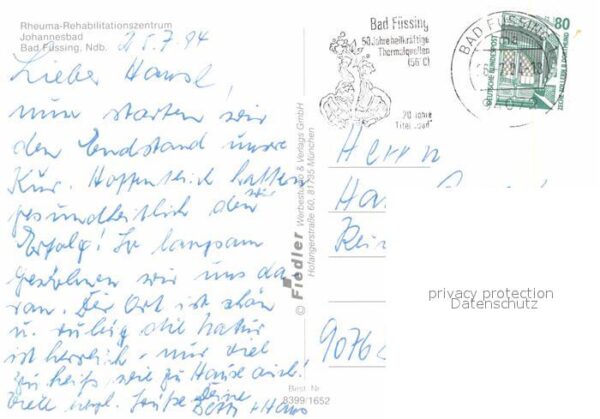 Rheuma-Rehabilitationszentrum
Johannesbad
Bad Füssing, Ndb.
25.7.94
Lieber Hansl,
nun starten wir
den Endstand unsre
Kur. Hoffentlich hatten
wir
gesundheitlich den
Erfolg! So langsam
gewöhnen wir uns da
ran. Der Ort ist schön
u. ruhig die Natur
ist herrlich - nur viel
zu heiß wie zu Hause auch!
Viele Grüße Deine
Betti + Hans
© Fiedler Werbestudio & Verlags GmbH
Hofangerstraße 60, 81735 München
Best. Nr.
8399/1652
Bad Füssing
50 Jahre heilkräftige
Thermalquellen
(56°C)
20 Jahre
Titel „Bad“
BAD FÜSSING
80
DEUTSCHE BUNDESPOST
ZECHE ZOLLERN II DORTMUND
Herrn
Ha
9076
privacy protection
Datenschutz